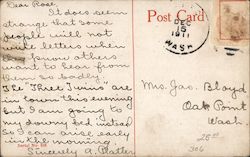 Dear Rose.
It does seem
strange that some
people will not
write letters when
they know others
want to hear from
them so badly.
The "Three Twins" are
in town this evening
but I am going to
my downy bed instead
so I can arise early
in the morning.
Sincerely A. Platter
Serial No.
Post Card
DEC
5
1911
WASH
Mrs. Jas. Bloyd
Oak Point
Wash.